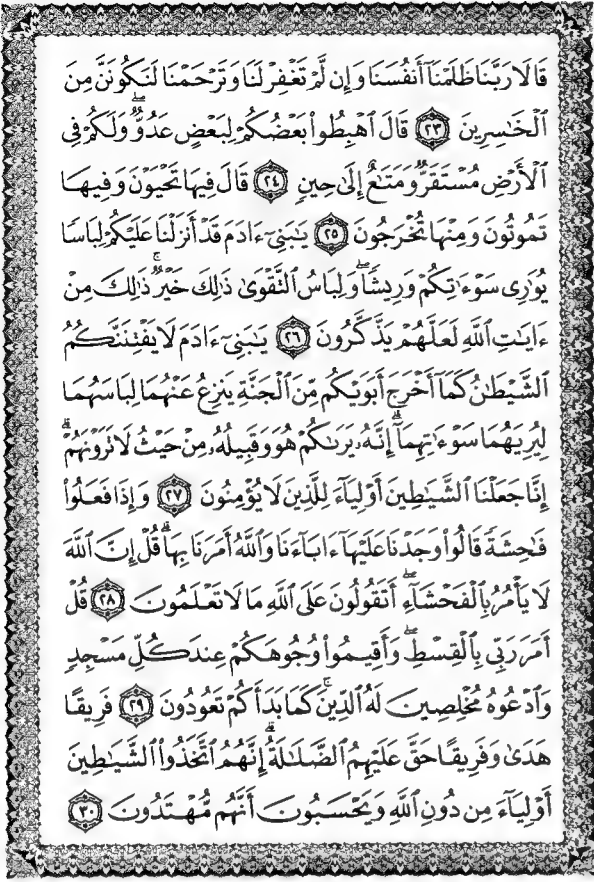 قَالَا رَبَّنَا ظَلَمْنَآ أَنفُسَنَا وَإِن لَّمْ تَغْفِرْ لَنَا وَتَرْحَمْنَا لَنَكُونَنَّ مِنَ
ٱلْخَٰسِرِينَ ۝٢٣ قَالَ ٱهْبِطُوا۟ بَعْضُكُمْ لِبَعْضٍ عَدُوٌّ ۖ وَلَكُمْ فِى
ٱلْأَرْضِ مُسْتَقَرٌّ وَمَتَٰعٌ إِلَىٰ حِينٍ ۝٢٤ قَالَ فِيهَا تَحْيَوْنَ وَفِيهَا
تَمُوتُونَ وَمِنْهَا تُخْرَجُونَ ۝٢٥ يَٰبَنِىٓ ءَادَمَ قَدْ أَنزَلْنَا عَلَيْكُمْ لِبَاسًا
يُوَٰرِى سَوْءَٰتِكُمْ وَرِيشًا ۖ وَلِبَاسُ ٱلتَّقْوَىٰ ذَٰلِكَ خَيْرٌ ۚ ذَٰلِكَ مِنْ
ءَايَٰتِ ٱللَّهِ لَعَلَّهُمْ يَذَّكَّرُونَ ۝٢٦ يَٰبَنِىٓ ءَادَمَ لَا يَفْتِنَنَّكُمُ
ٱلشَّيْطَٰنُ كَمَآ أَخْرَجَ أَبَوَيْكُم مِّنَ ٱلْجَنَّةِ يَنزِعُ عَنْهُمَا لِبَاسَهُمَا
لِيُرِيَهُمَا سَوْءَٰتِهِمَآ ۗ إِنَّهُۥ يَرَىٰكُمْ هُوَ وَقَبِيلُهُۥ مِنْ حَيْثُ لَا تَرَوْنَهُمْ ۗ
إِنَّا جَعَلْنَا ٱلشَّيَٰطِينَ أَوْلِيَآءَ لِلَّذِينَ لَا يُؤْمِنُونَ ۝٢٧ وَإِذَا فَعَلُوا۟
فَٰحِشَةً قَالُوا۟ وَجَدْنَا عَلَيْهَآ ءَابَآءَنَا وَٱللَّهُ أَمَرَنَا بِهَا ۗ قُلْ إِنَّ ٱللَّهَ
لَا يَأْمُرُ بِٱلْفَحْشَآءِ ۖ أَتَقُولُونَ عَلَى ٱللَّهِ مَا لَا تَعْلَمُونَ ۝٢٨ قُلْ
أَمَرَ رَبِّى بِٱلْقِسْطِ ۖ وَأَقِيمُوا۟ وُجُوهَكُمْ عِندَ كُلِّ مَسْجِدٍ
وَٱدْعُوهُ مُخْلِصِينَ لَهُ ٱلدِّينَ ۚ كَمَا بَدَأَكُمْ تَعُودُونَ ۝٢٩ فَرِيقًا
هَدَىٰ وَفَرِيقًا حَقَّ عَلَيْهِمُ ٱلضَّلَٰلَةُ ۗ إِنَّهُمُ ٱتَّخَذُوا۟ ٱلشَّيَٰطِينَ
أَوْلِيَآءَ مِن دُونِ ٱللَّهِ وَيَحْسَبُونَ أَنَّهُم مُّهْتَدُونَ ۝٣٠